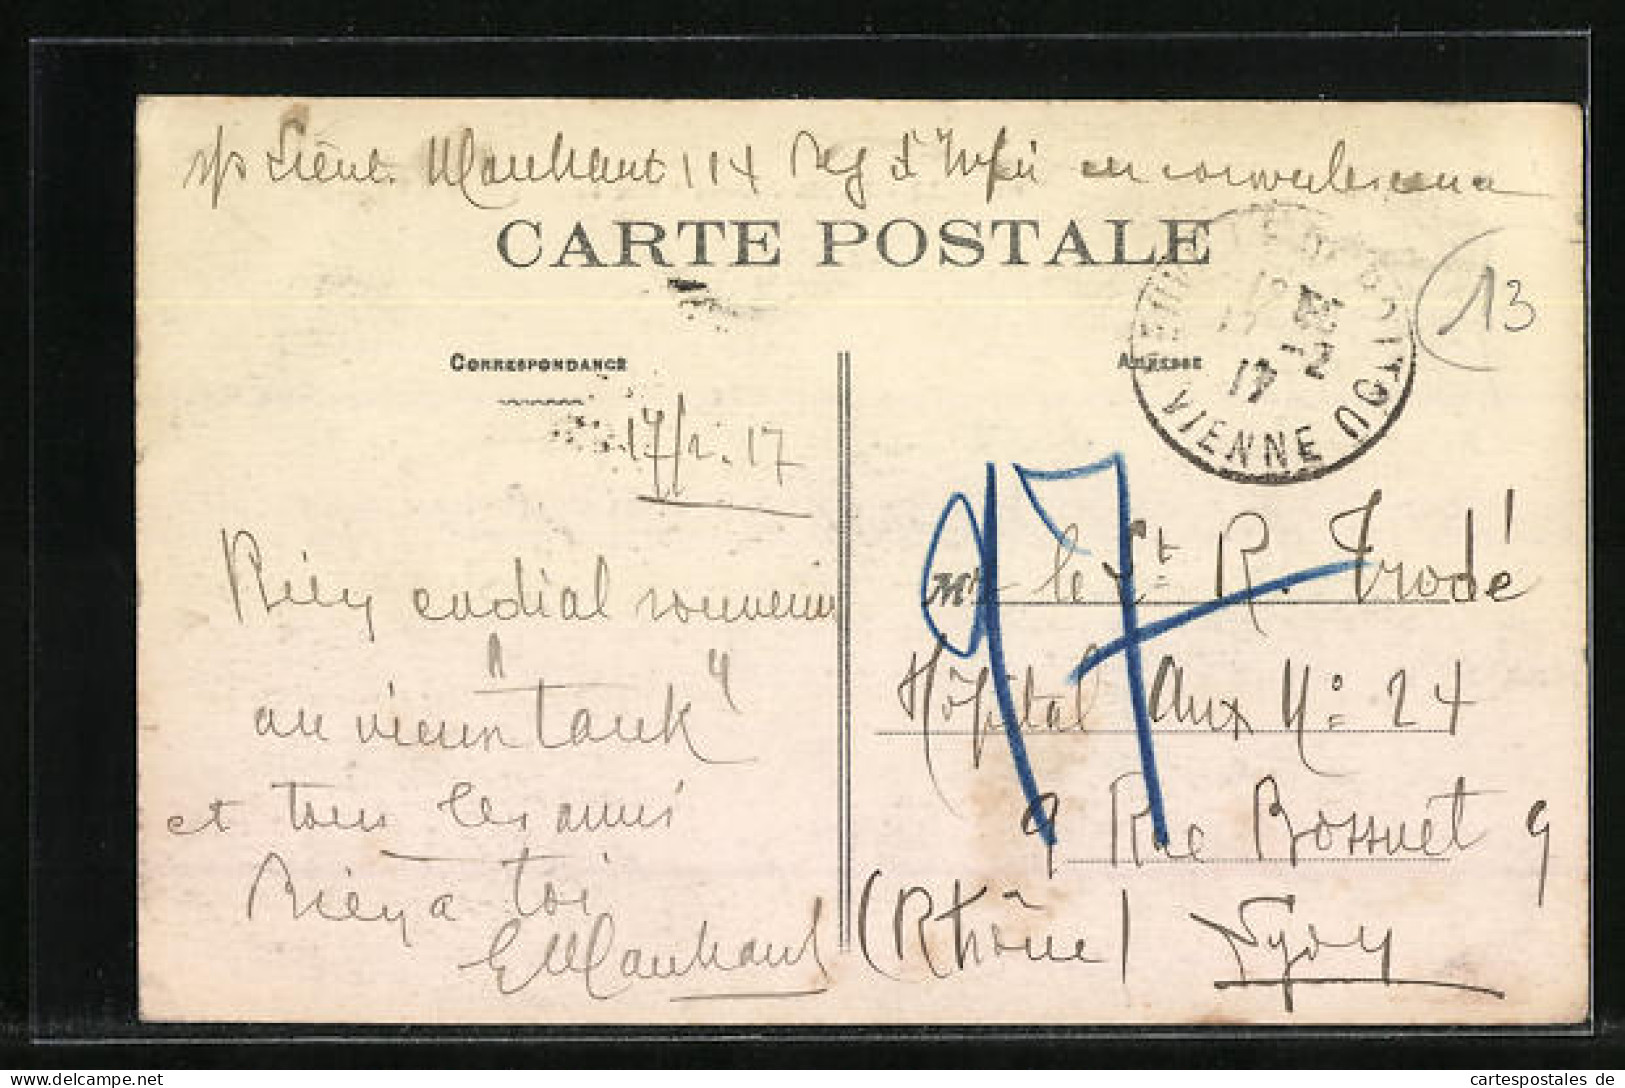 s/s Lieut. Marchand 114 Reg d'Infie en convalescence
CARTE POSTALE
VIENNE
17
13
CORRESPONDANCE
ADRESSE
17/2.17
97
Bien cordial souvenir
au vieux "Tank"
et tous les amis
Bien a toi
EMarchand
Mr le Lt R. Trodé
Hôpital Aux No 24
9 Rue Bossuet 9
(Rhône) Lyon
cartespostales de